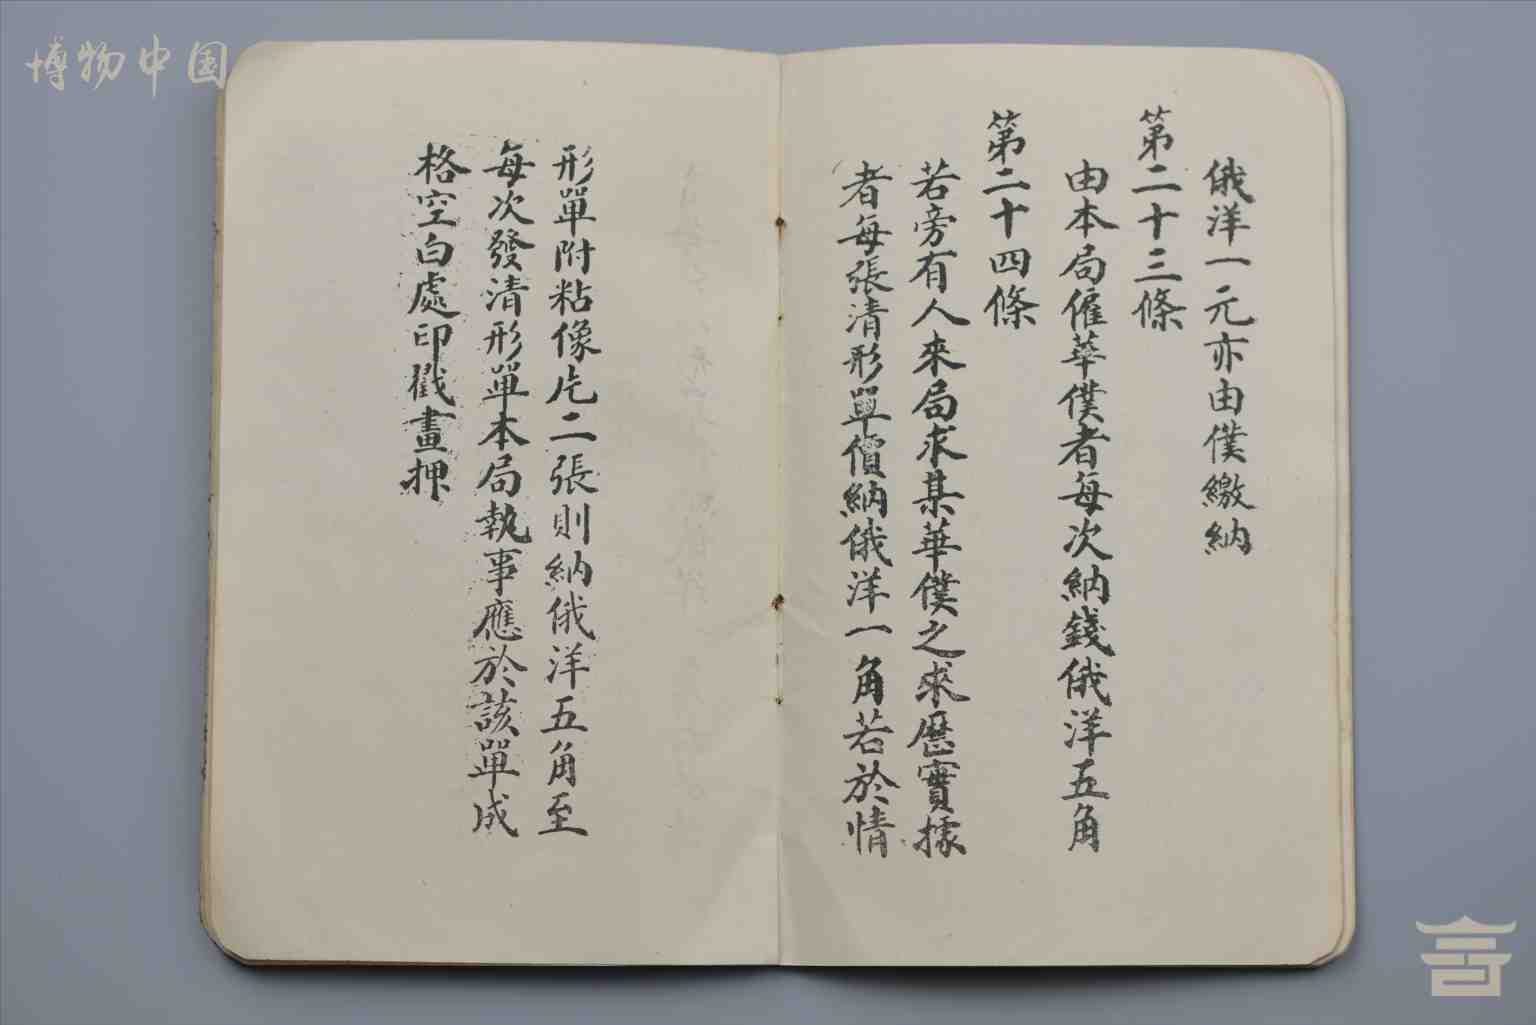 博物中国
俄洋一元亦由僕繳納
第二十三條
由本局僱華僕者每次納錢俄洋五角
第二十四條
若旁有人來局求某華僕之求歷實據
者每張清形單價納俄洋一角若於情
形單附粘像片二張則納俄洋五角至
每次發清形單本局執事應於該單成
格空白處印戳畫押